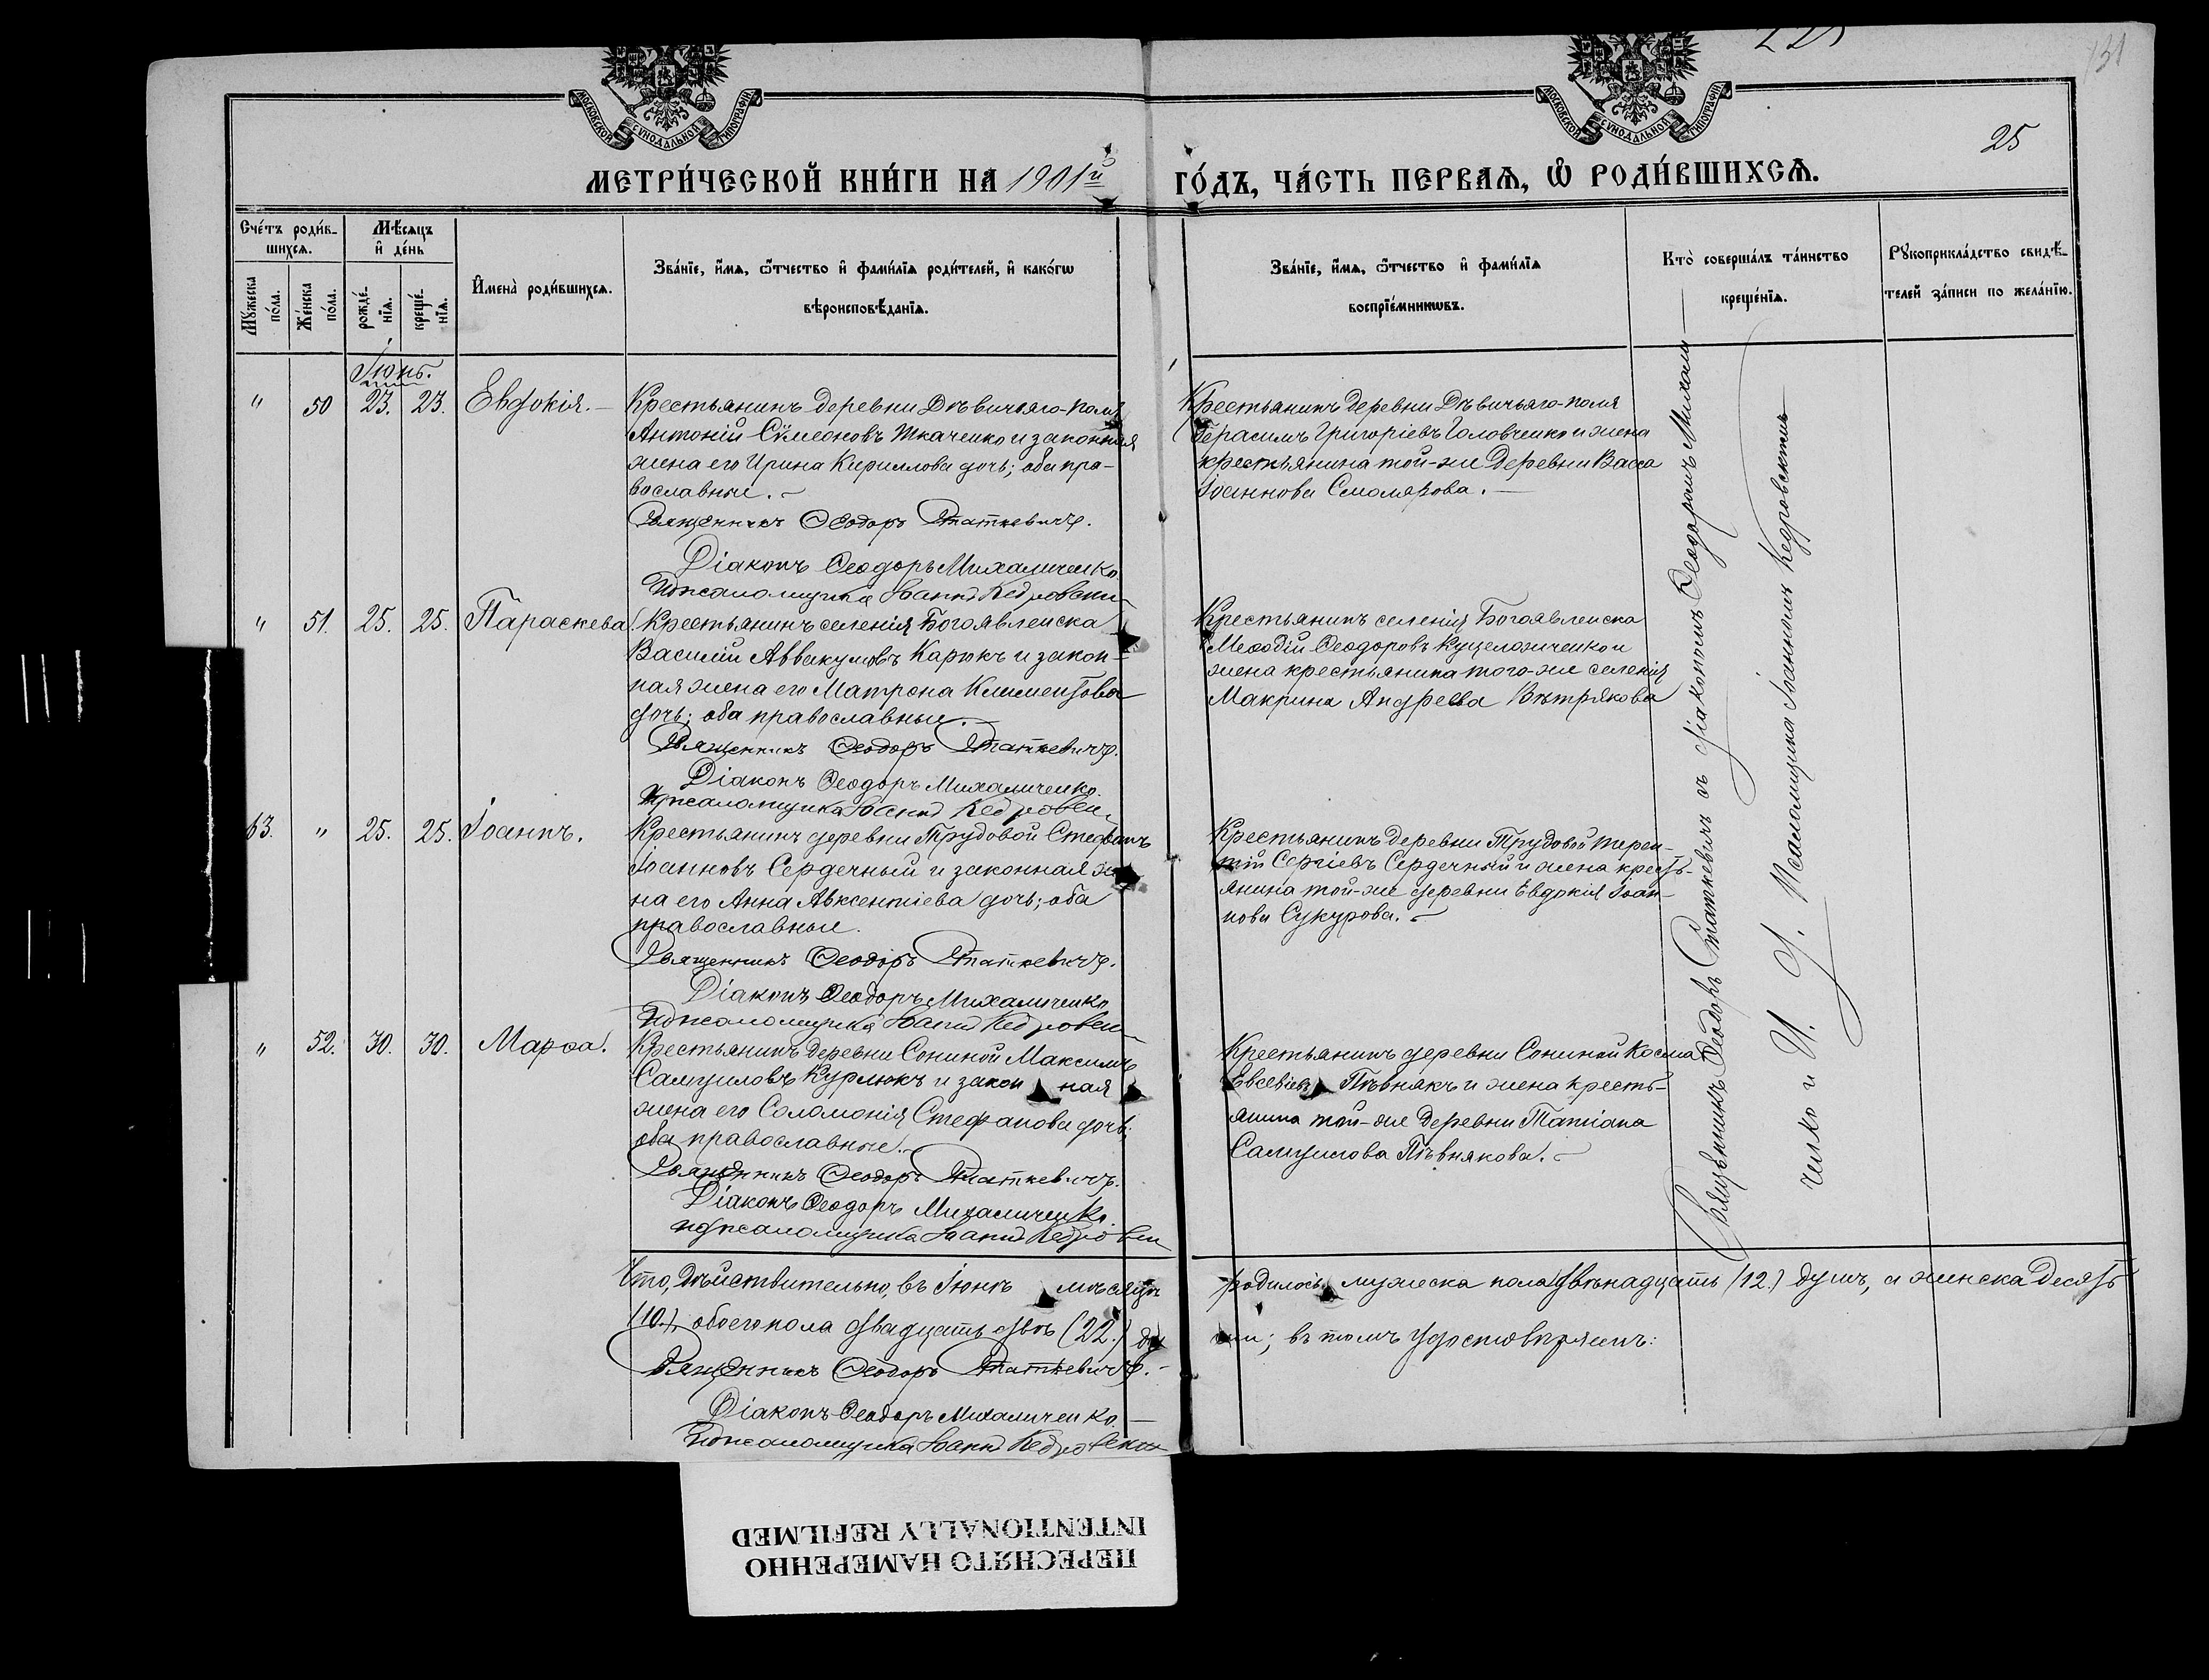 131
25
МОСКОВСКОЙ СѴНОДАЛЬНОЙ ТИПОГРАФІИ
МОСКОВСКОЙ СѴНОДАЛЬНОЙ ТИПОГРАФІИ
МЕТРИ́ЧЕСКОЙ КНИ́ГИ НА 1901й ГО́ДЪ, ЧА́СТЬ ПЕРВАѦ, Ѡ РОДИ́ВШИХСѦ.
Сче́тъ роди́в-
шихсѧ.
Мꙋ́жеска
по́ла.
Же́нска
по́ла.
Мѣ́сѧцъ
и҆ де́нь
рожде́-
нїѧ.
креще́-
нїѧ.
И҆мена̀ роди́вшихсѧ.
Зва́нїе, и҆́мѧ, ѻ҆́тчество и҆ фами́лїѧ роди́телей, и҆ како́гѡ
вѣроисповѣ́данїѧ.
Зва́нїе, и҆́мѧ, ѻ҆́тчество и҆ фами́лїѧ
воспрїе́мникѡвъ.
Кто̀ соверша́лъ та́инство
креще́нїѧ.
Рꙋкоприкла́дство свидѣ́-
телей за́писи по жела́нїю.
Іюнь.
" 50 23. 23. Евдокія.
Крестьянинъ деревни Дѣвичьяго-поля
Антоній Сѵмеоновъ Ткаченко и законная
жена его Ирина Кириллова дочь; оба пра-
вославные.
Священникъ Ѳеодоръ Статкевичъ.
Діаконъ Ѳеодоръ Михаличенко.
Псаломщикъ Іоаннъ Кедровск
Крестьянинъ деревни Дѣвичьяго-поля
Герасимъ Григоріевъ Головченко и жена
крестьянина той-же деревни Васса
Іоаннова Смолярова.
" 51. 25. 25. Параскева.
Крестьянинъ селенія Богоявленска
Василій Аввакумовъ Карюкъ и закон-
ная жена его Матрона Климентова
дочь; оба православные.
Священникъ Ѳеодоръ Статкевичъ.
Діаконъ Ѳеодоръ Михаличенко.
Псаломщикъ Іоаннъ Кедровск
Крестьянинъ селенія Богоявленска
Меѳодій Ѳеодоровъ и
жена крестьянина того-же селенія
Макрина Андреева Вѣтрякова
63. " 25. 25. Іоаннъ.
Крестьянинъ деревни Трудовой Стефанъ
Іоанновъ Сердечный и законная же
на его Анна Авксентіева дочь; оба
православные.
Священникъ Ѳеодоръ Статкевичъ.
Діаконъ Ѳеодоръ Михаличенко
Псаломщикъ Іоаннъ Кедровск
Крестьянинъ деревни Трудовой Терен-
тій Сергіевъ Сердечный и жена кресть-
янина той-же деревни Евдокія Іоан-
нова Сукурова.
" 52. 30. 30. Марѳа.
Крестьянинъ деревни Сониной Максимъ
Самуиловъ Курлюкъ и закон ная
жена его Соломонія Стефанова дочь;
оба православные.
Священникъ Ѳеодоръ Статкевичъ.
Діаконъ Ѳеодоръ Михаличенко.
Псаломщикъ Іоаннъ Кедровск
Крестьянинъ деревни Сониной Косма
Евсевіевъ Пѣвнякъ и жена кресть-
янина той-же деревни Татіана
Самуилова Пѣвнякова.
Священникъ Ѳеодоръ Статкевичъ съ діакономъ Ѳеодоромъ Михали
ченко и И. д. Псаломщика Іоанномъ Кедровскимъ
Что, дѣйствительно, въ Іюнѣ мѣсяцѣ родилось мужеска пола двѣнадцать (12.) душъ, а женска десять
(10.), обоего пола двадцать двѣ (22.) ду ши; въ томъ удостовѣряемъ:
Священникъ Ѳеодоръ Статкевичъ.
Діаконъ Ѳеодоръ Михаличенко.
Псаломщикъ Іоаннъ Кедровскій
ПЕРЕСНЯТО НАМЕРЕННО
INTENTIONALLY REFILMED